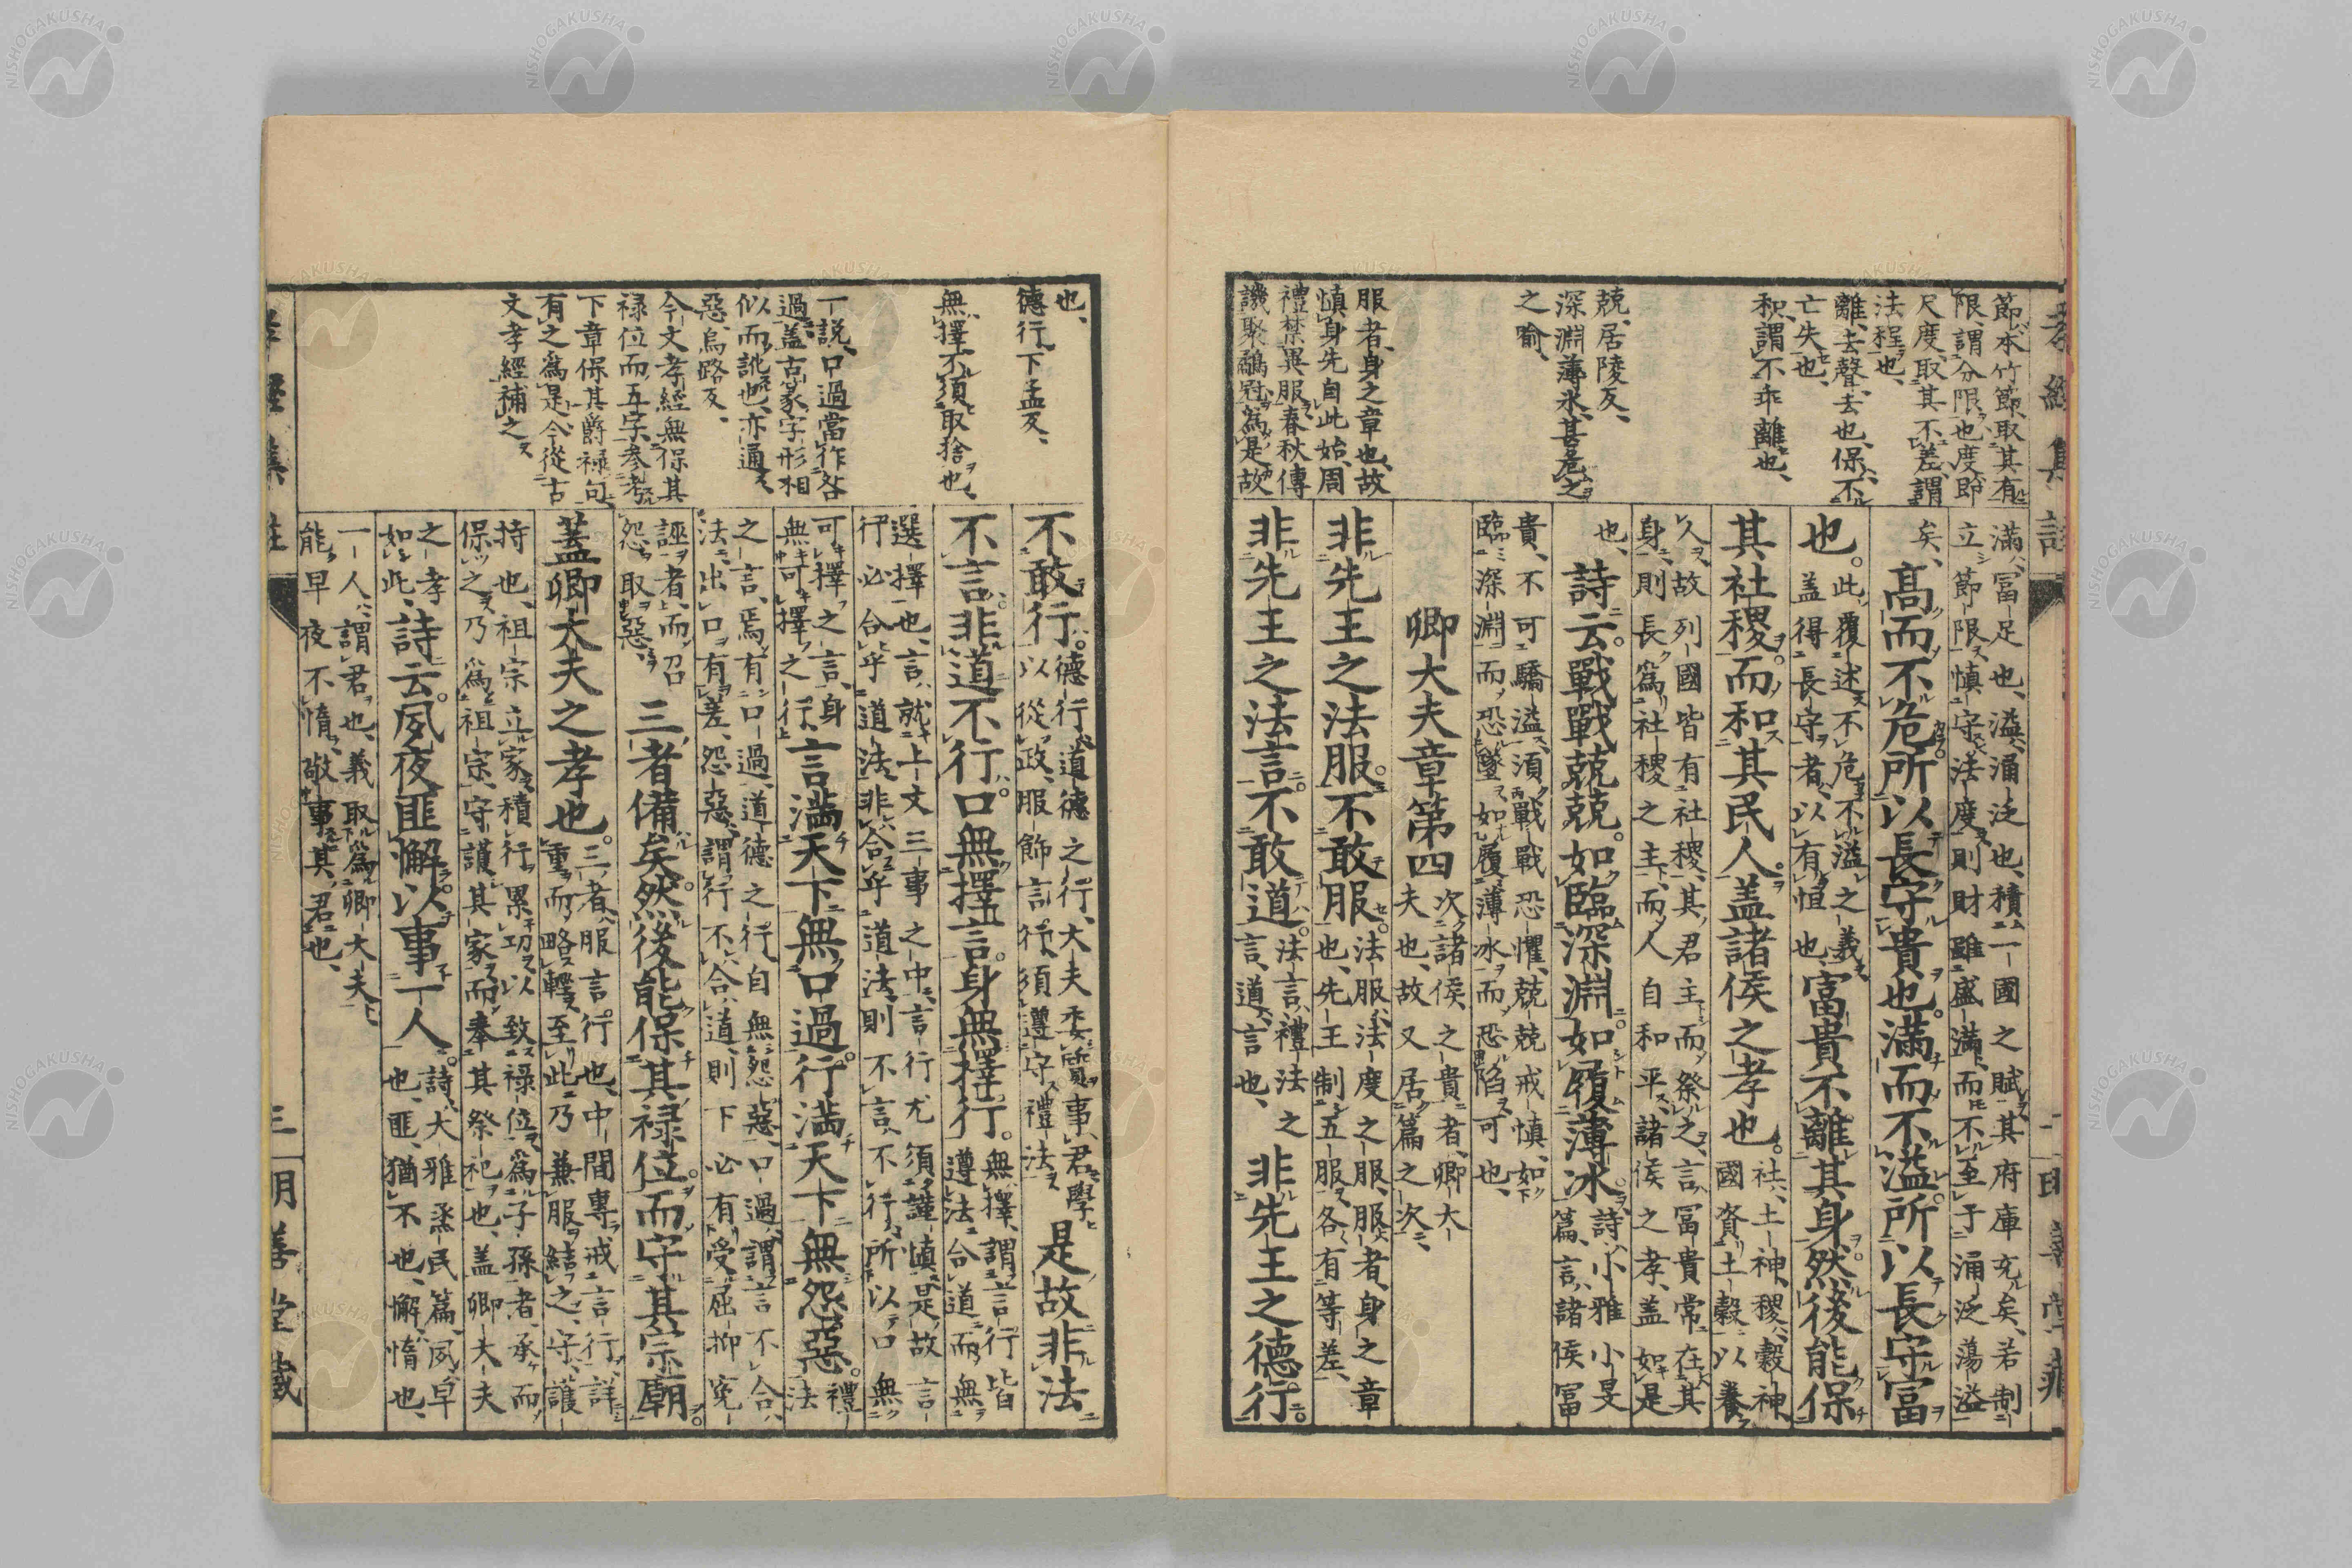 孝經集註
節、本竹節、取其有
限、謂分限也、度、即
尺度、取其不差、謂
法程也、
離、去聲、去也、保、不
亡失也、
和、謂不乖離也、
兢、居陵反、
深淵薄氷、甚危之
之喻、
服者、身之章也、故
慎身先自此始、周
禮禁異服、春秋傳
譏聚鷸冠、爲是故
滿、富足也、溢、涌泛也、積一國之賦、其府庫充矣、若制
立節限、慎守法度、則財雖盛滿、而不至于涌泛蕩溢
矣、高而不危。所以長守貴也。滿而不溢。所以長守富
也。此覆述不危不溢之義、盖得長守者、以有恒也、富貴不離其身。然後能保
其社稷。而和其民人。盖諸侯之孝也。社、土神、稷、穀神、國資土穀、以養
人、故列國皆有社稷、其君主而祭之、言富貴常在其
身、則長爲社稷之主、而人自和平、諸侯之孝、盖如是
也、詩云。戰戰兢兢。如臨深淵。如履薄冰。詩、小雅小旻篇、言諸侯富
貴、不可驕溢、須戰戰恐懼、兢兢戒慎、如
臨深淵而恐墜、如履薄冰而恐陷可也、
卿大夫章第四 次諸侯之貴者、卿大夫也、故又居篇之次、
非先王之法服。不敢服。法服、法度之服、服者、身之章也、先王制五服、各有等差、
非先王之法言。不敢道。法言、禮法之言、道、言也、非先王之德行。
三 明善堂藏
也、
德行、下孟反、
無擇、不須取捨也、
一說、口過當作咎
過、盖古篆字形相
似而訛也、亦通、
惡、烏路反、
今文孝經無保其
禄位而五字、参考
下章保其爵禄句、
有之爲是、今從古
文孝經補之、
不敢行。德行、道德之行、大夫委質事君、學以從政、服飾言行、須遵守禮法、是故非法
不言。非道不行。口無擇言。身無擇行。無擇、謂言行皆遵法合道、而無
選擇也、言就上文三事之中、言行尤須謹慎、是故言
行必合乎道法、非合乎道法、則不言、不行、所以口無
可擇之言、身無可擇之行、言滿天下無口過。行滿天下無怨惡。禮法
之言、焉有口過、道德之行、自無怨惡、口過、謂言不合
法、出口有差、怨惡、謂行不合道、則下必有受屈抑寃
誣者、而召怨取惡、三者備矣。然後能保其禄位。而守其宗廟。
蓋卿大夫之孝也。三者、服言行也、中間專戒言行、詳重而略輕、至此乃兼服結之、守、護
持也、祖宗立家、積行累功、以致禄位、爲子孫者、承而
保之、乃爲祖宗、守護其家、而奉其祭祀也、盖卿大夫
之孝如此、詩云。夙夜匪懈。以事一人。詩、大雅烝民篇、夙、早也、匪、猶不也、懈、惰也、
一人、謂君也、義取爲卿大夫、
能早夜不惰、敬事其君也、